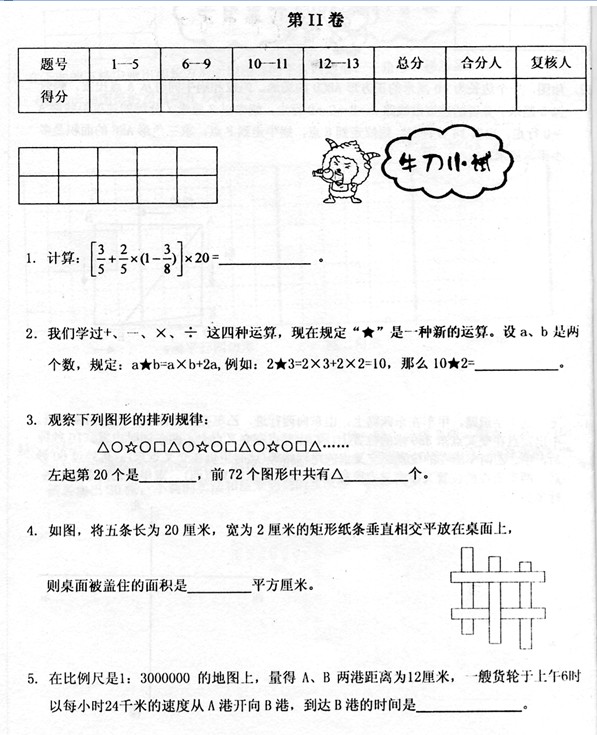 第 II 卷
题号 1—5 6—9 10—11 12—13 总分 合分人 复核人
得分
牛刀小试
1. 计算：[3/5+2/5×(1-3/8)]×20=____________ 。
2. 我们学过+、一、×、÷ 这四种运算，现在规定“★”是一种新的运算。设 a、b 是两
个数，规定：a★b=a×b+2a,例如：2★3=2×3+2×2=10，那么 10★2=___________。
3. 观察下列图形的排列规律：
△○☆○□△○☆○□△○☆○□△……
左起第 20 个是________，前 72 个图形中共有△_________个。
4. 如图，将五条长为 20 厘米，宽为 2 厘米的矩形纸条垂直相交平放在桌面上，
则桌面被盖住的面积是_________平方厘米。
5. 在比例尺是1：3000000 的地图上，量得 A、B 两港距离为12厘米，一艘货轮于上午6时
以每小时24千米的速度从 A 港开向 B 港，到达 B 港的时间是______________。